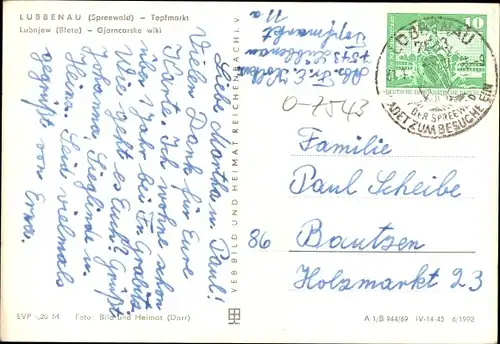 LÜBBENAU (Spreewald) – Topfmarkt
Lubnjow (Błota) – Gjarncarske wiki
Liebe Martha u. Paul!
Vielen Dank für Eure
Karte. Ich wohne schon
über 1 Jahr bei Fr.
Wie geht es Euch? Grüßt
Johanna, Sieglinde u.
Heinz. Seid vielmals
gegrüßt von Erna.
EVP -,20 M Foto: Bild und Heimat (Darr)
VEB BILD UND HEIMAT REICHENBACH I. V.
Abs. Fr. E.
7543 Lübbenau
Topfmarkt
11a
O-7543
10
DEUTSCHE DEMOKRATISCHE
LÜBBENAU
DER SPREEWALD
LADET ZUM BESUCHE EIN
Familie
Paul Scheibe
86 Bautzen
Holzmarkt 23
A 1/B 944/69 IV-14-45 6/1992